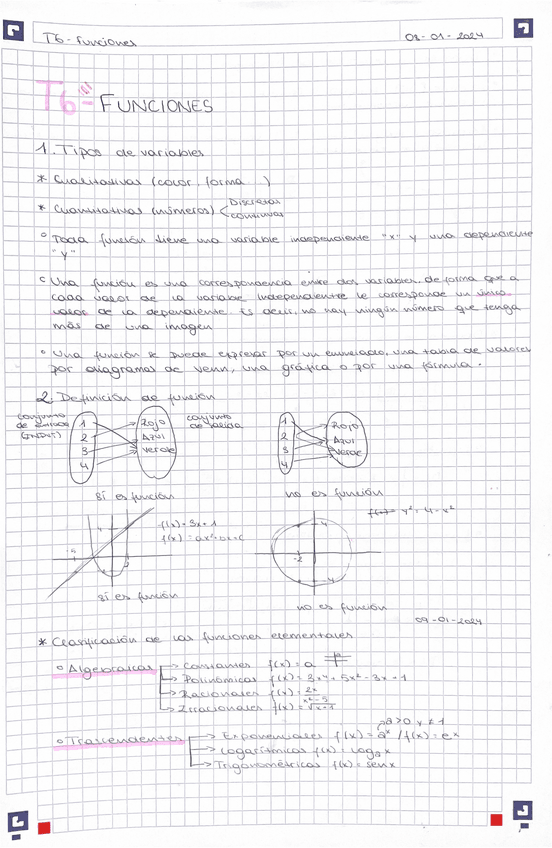 T6 - Funciones
08-01-2024
T6 - FUNCIONES
1. Tipos de variables
* Cualitativas (color, forma )
* Cuantitativas (números) < Discretas
continuas
° Toda función tiene una variable independiente "x" y una dependiente
"y"
° Una función es una correspondencia entre dos variables, de forma que a
cada valor de la variable independiente le corresponde un único
valor de la dependiente. Es decir, no hay ningún número que tenga
más de una imagen
° Una función se puede expresar por un enunciado, una tabla de valores
por diagramas de venn, una gráfica o por una fórmula.
2. Definición de función
conjunto
de entrada
(INPUT)
1
2
3
4
Rojo
Azul
verde
conjunto
de salida
1
2
3
4
Rojo
Azul
verde
Sí es función
no es función
f(x) = 3x+1
f(x) = ax²+bx+c
y² = 4-x²
4
-2
Sí es función
no es función
09-01-2024
* Clasificación de las funciones elementales
° Algebraicas
→ Constantes f(x) = a
→ Polinómicas f(x) = 3x⁴ + 5x² - 3x + 1
→ Racionales f(x) = 2x/x²-5
→ Irracionales f(x) = √x+1
a>0 y ≠ 1
° Trascendentes
→ Exponenciales f(x) = aˣ / f(x) = eˣ
→ Logarítmicas f(x) = logₐx
→ Trigonométricas f(x) = sen x